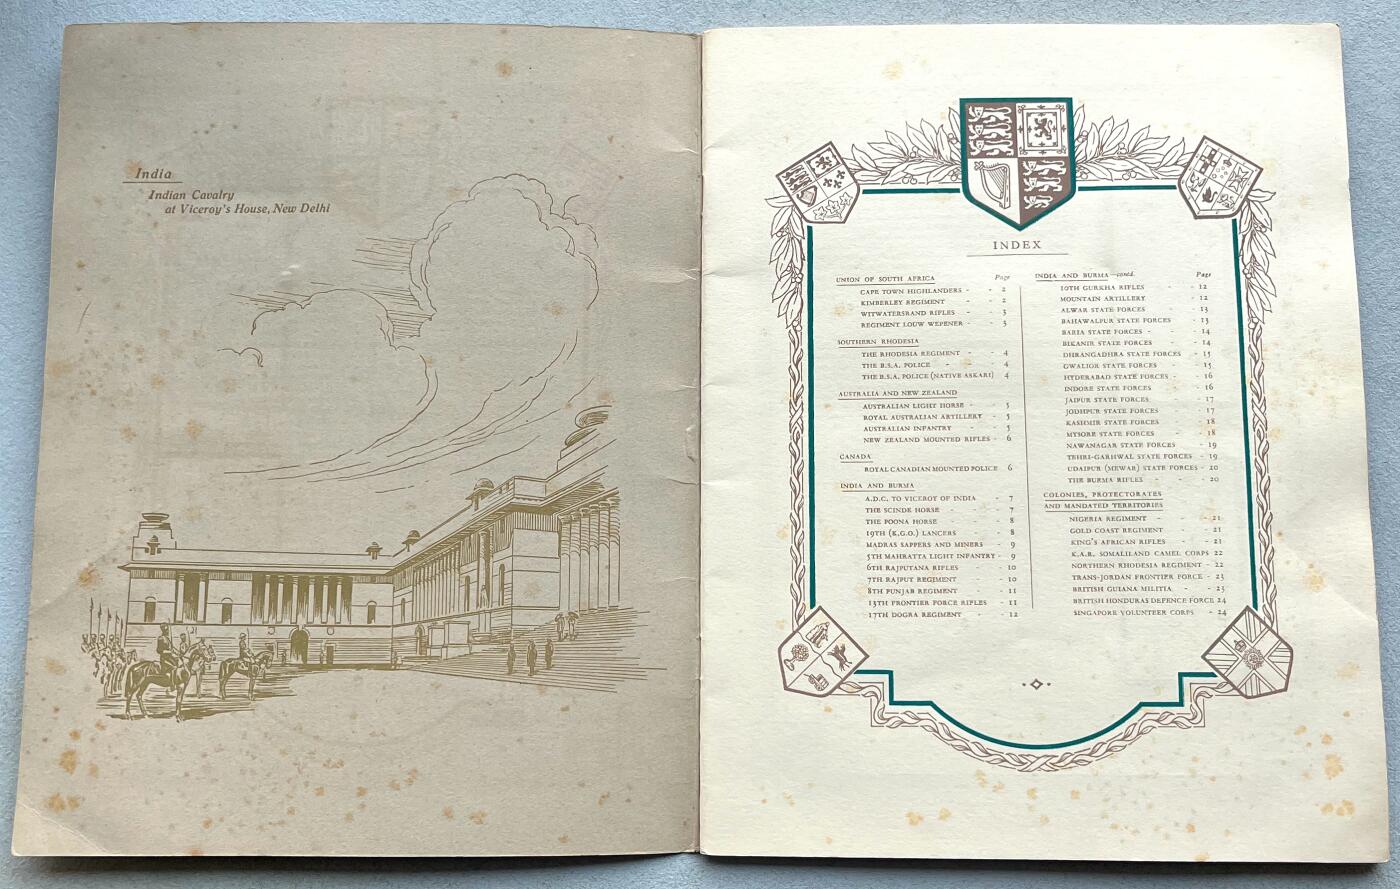 India
Indian Cavalry
at Viceroy's House, New Delhi
INDEX
UNION OF SOUTH AFRICA Page
CAPE TOWN HIGHLANDERS - - 2
KIMBERLEY REGIMENT - - 2
WITWATERSRAND RIFLES - - 3
REGIMENT LOUW WEPENER - - 3
SOUTHERN RHODESIA
THE RHODESIA REGIMENT - - 4
THE B.S.A. POLICE - - - 4
THE B.S.A. POLICE (NATIVE ASKARI) 4
AUSTRALIA AND NEW ZEALAND
AUSTRALIAN LIGHT HORSE - - 5
ROYAL AUSTRALIAN ARTILLERY - - 5
AUSTRALIAN INFANTRY - - 5
NEW ZEALAND MOUNTED RIFLES - 6
CANADA
ROYAL CANADIAN MOUNTED POLICE 6
INDIA AND BURMA
A.D.C. TO VICEROY OF INDIA - 7
THE SCINDE HORSE - - 7
THE POONA HORSE - - 8
19TH (K.G.O.) LANCERS - - 8
MADRAS SAPPERS AND MINERS - - 9
5TH MAHRATTA LIGHT INFANTRY - 9
6TH RAJPUTANA RIFLES - - 10
7TH RAJPUT REGIMENT - - 10
8TH PUNJAB REGIMENT - - 11
13TH FRONTIER FORCE RIFLES - 11
17TH DOGRA REGIMENT - - 12
INDIA AND BURMA—contd. Page
10TH GURKHA RIFLES - - 12
MOUNTAIN ARTILLERY - - 12
ALWAR STATE FORCES - - 13
BAHAWALPUR STATE FORCES - 13
BARIA STATE FORCES - - - 14
BIKANIR STATE FORCES - - 14
DHRANGADHRA STATE FORCES - 15
GWALIOR STATE FORCES - - 15
HYDERABAD STATE FORCES - - 16
INDORE STATE FORCES - - 16
JAIPUR STATE FORCES - - 17
JODHPUR STATE FORCES - 17
KASHMIR STATE FORCES - - 18
MYSORE STATE FORCES - - 18
NAWANAGAR STATE FORCES - 19
TEHRI-GARHWAL STATE FORCES - 19
UDAIPUR (MEWAR) STATE FORCES - 20
THE BURMA RIFLES - - - 20
COLONIES, PROTECTORATES
AND MANDATED TERRITORIES
NIGERIA REGIMENT - - - 21
GOLD COAST REGIMENT - - 21
KING'S AFRICAN RIFLES - - 21
K.A.R. SOMALILAND CAMEL CORPS 22
NORTHERN RHODESIA REGIMENT - 22
TRANS-JORDAN FRONTIER FORCE - 23
BRITISH GUIANA MILITIA - - 23
BRITISH HONDURAS DEFENCE FORCE 24
SINGAPORE VOLUNTEER CORPS - 24